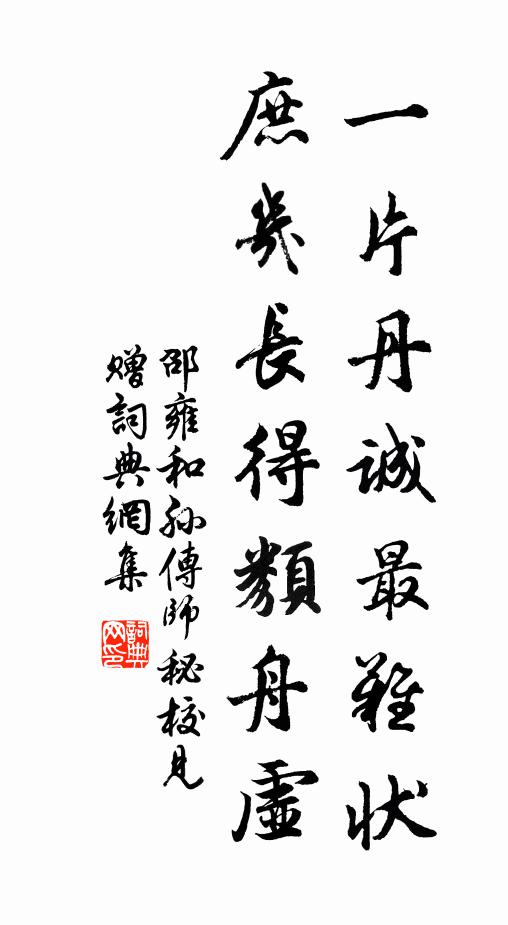 一片丹誠最難狀
庶幾長得類舟虛
邵雍和孫傳師秘校見
贈詞典網集
詞典
网印